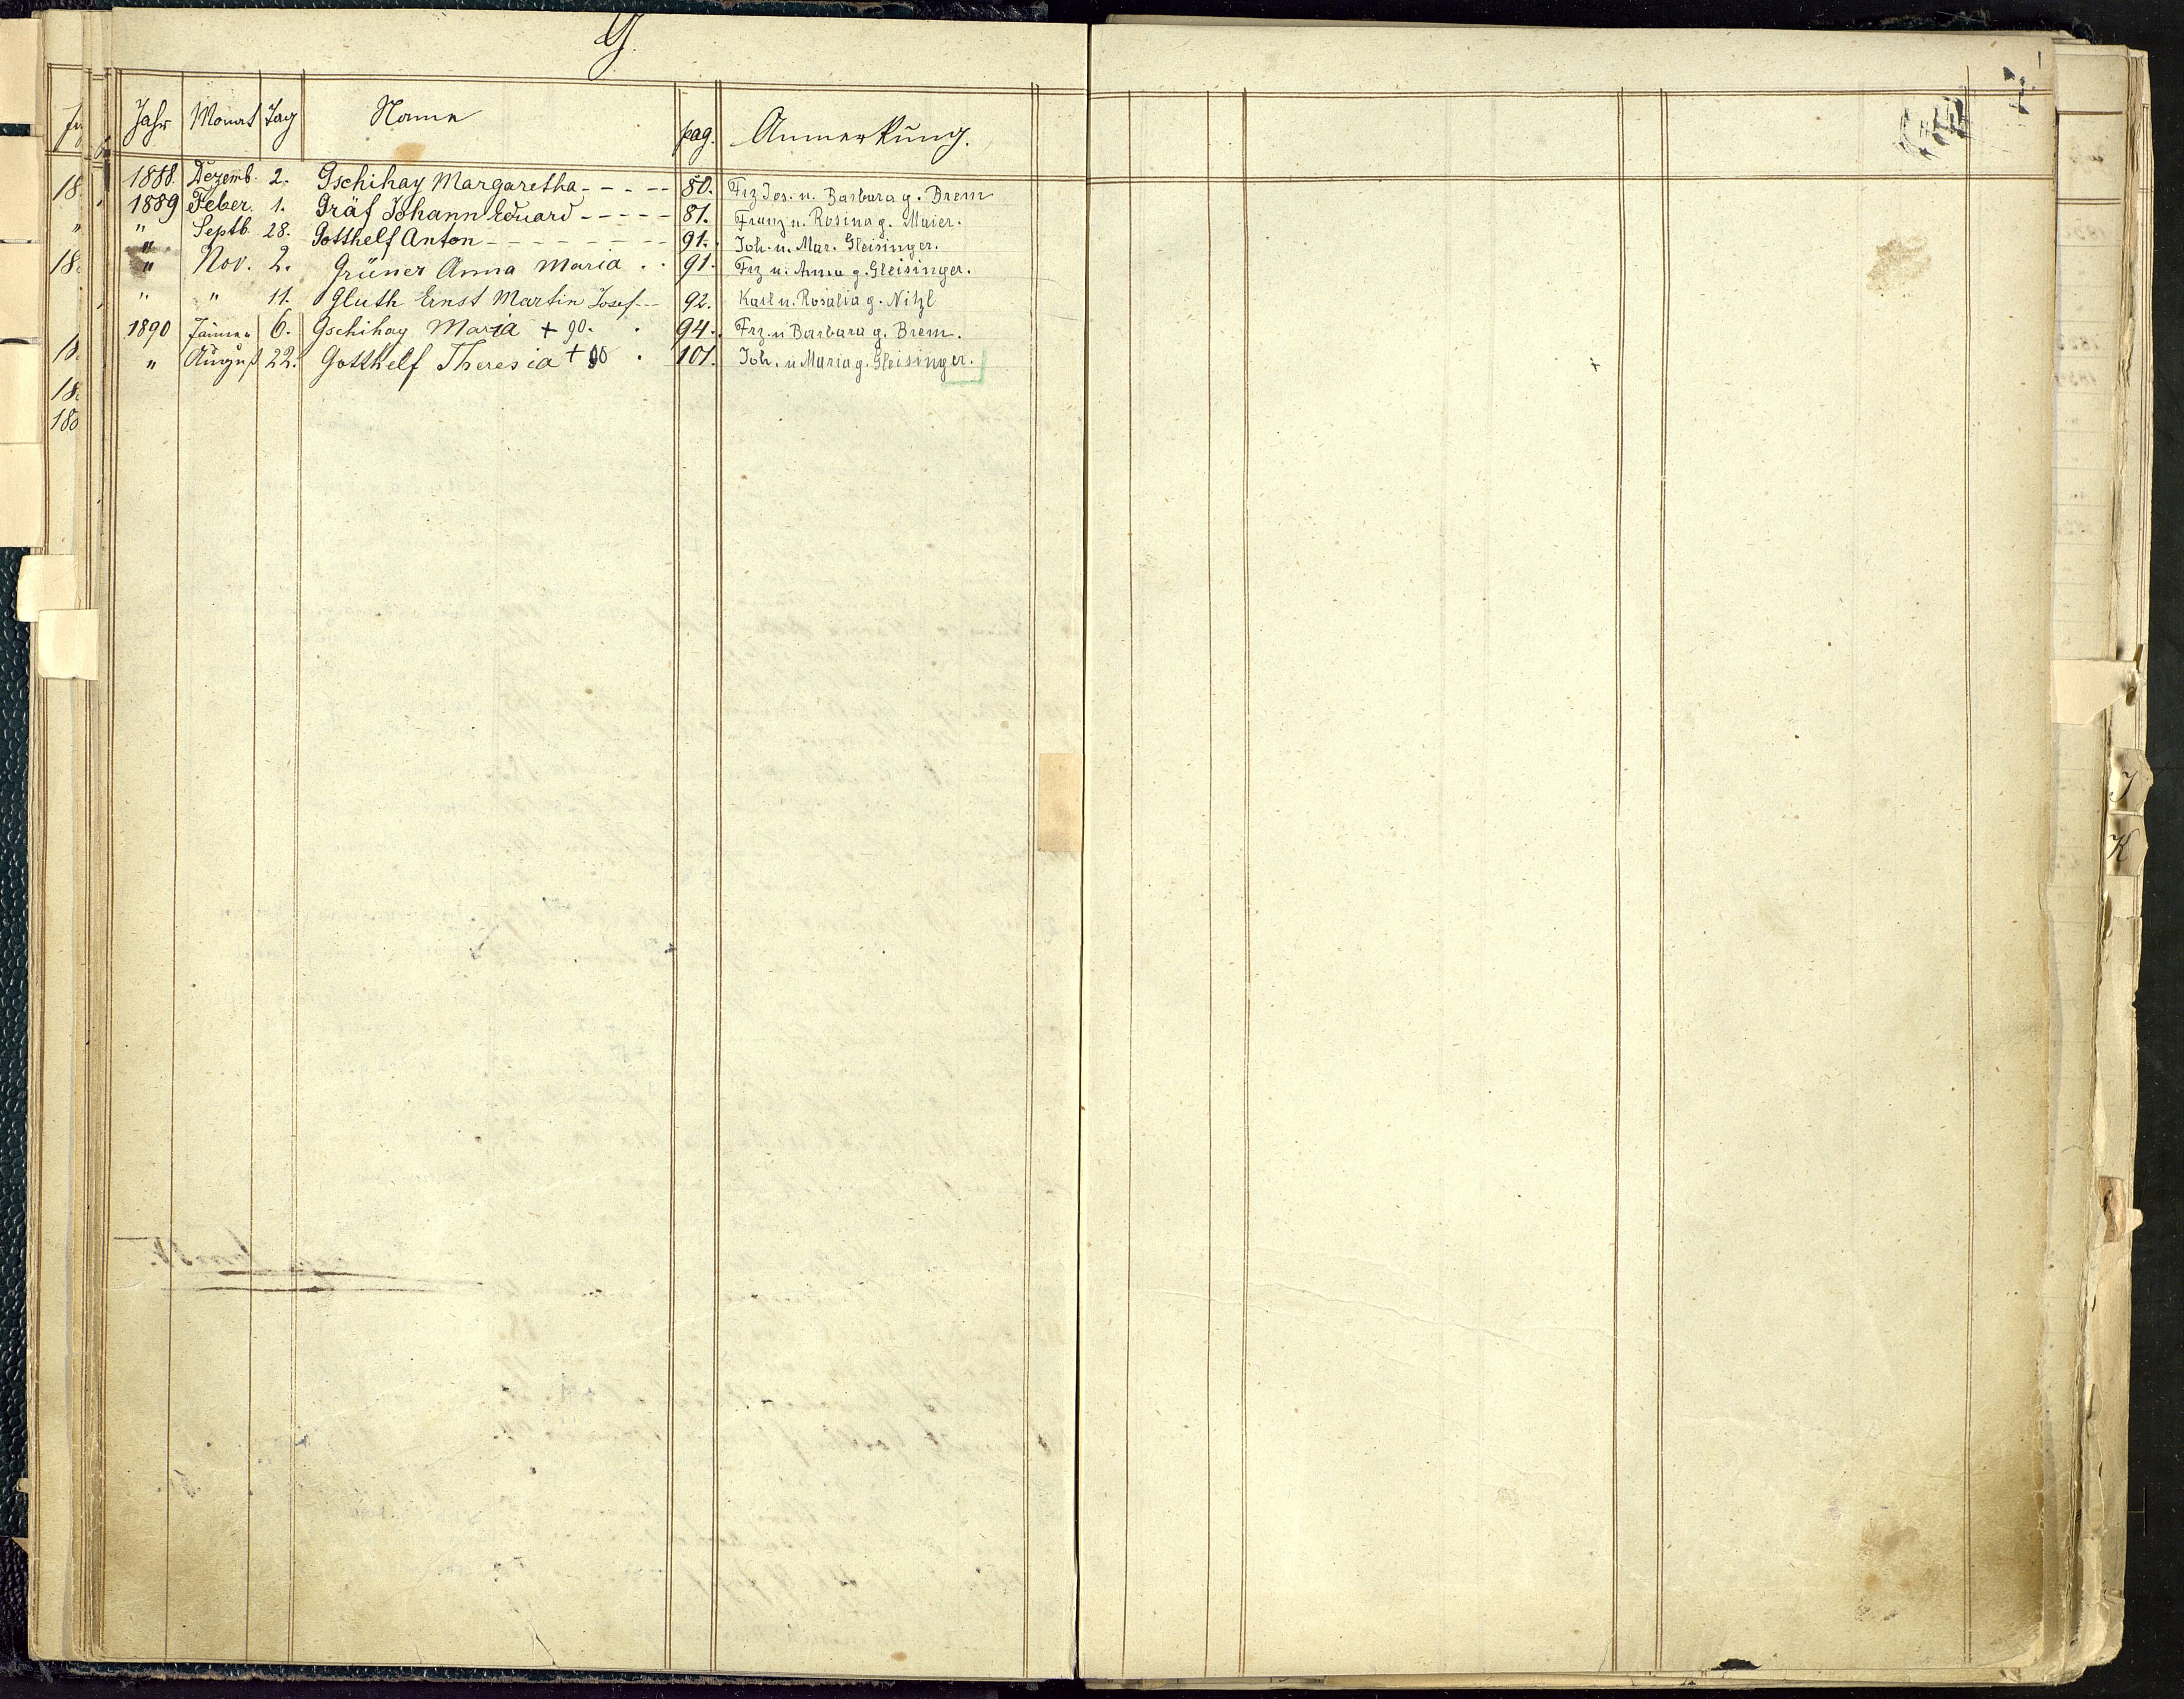 G.
Jahr Monat Tag Name pag. Anmerkung.
1888. Dezemb. 2. Gschihay Margaretha - - - - 80. Frz Jos. u. Barbara g. Brem
1889 Feber. 1. Gräf Johann Eduard - - - - - 81. Franz u. Rosina g. Maier.
" Septb. 28. Gotthelf Anton - - - - - - - - 91. Joh. u. Mar. Gleisinger.
" Nov. 2. Grüner Anna Maria . . 91. Frz u. Anna g. Gleisinger.
" " 11. Gluth Ernst Martin Josef - - 92. Karl u. Rosalia g. Nitzl
1890 Jänner 6. Gschihay Maria + 90. . 94. Frz. u Barbara g. Brem.
" August 22. Gotthelf Theresia + 90 . 101. Joh. u Maria g. Gleisinger.
J
K